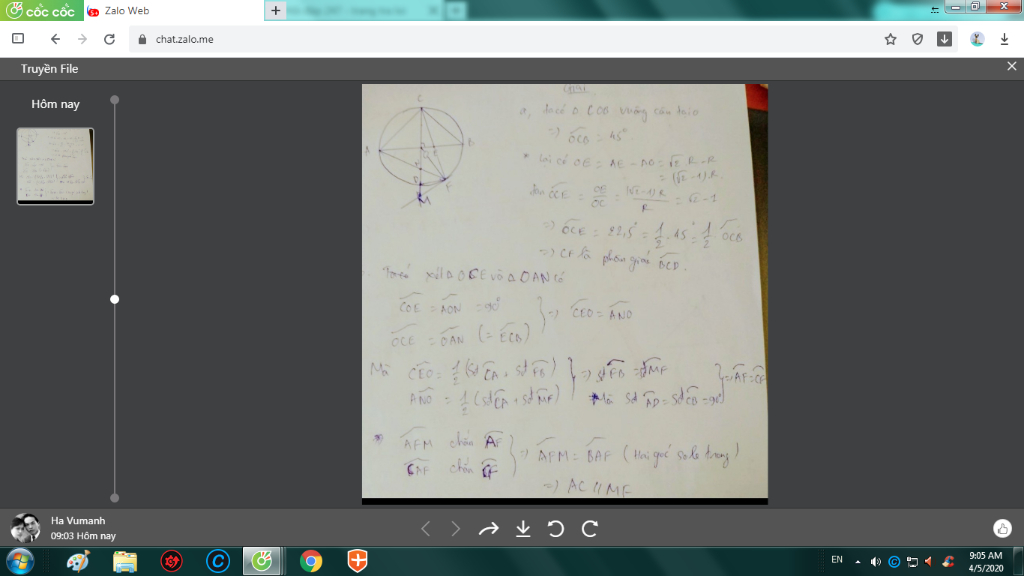 cốc cốc
Zalo Web
chat.zalo.me
Truyền File
Hôm nay
C
A
B
E
F
M
Giải
a, ta có Δ COB vuông cân tại O
=> OCB = 45°
* Lại có OE = AE - AO = √2 R - R
= (√2 - 1) R.
tan OCE = OE/OC = (√2-1)R/R = √2 - 1
=> OCE = 22,5° = 1/2 . 45° = 1/2 OCB
=> CF là phân giác BCD.
xét Δ OCE và Δ OAN có
COE = AON = 90°
OCE = OAN (= ECB)
=> CEO = ANO
Mà CEO = 1/2 (sđ CA + sđ FB)
ANO = 1/2 (sđ CA + sđ MF)
=> sđ FB = sđ MF
Mà sđ AD = sđ CB = 90°
=> AF = CF
* AFM chắn AF
CAF chắn CF
=> AFM = BAF (Hai góc so le trong)
=> AC // MF
Ha Vumanh
09:03 Hôm nay
EN
9:05 AM
4/5/2020